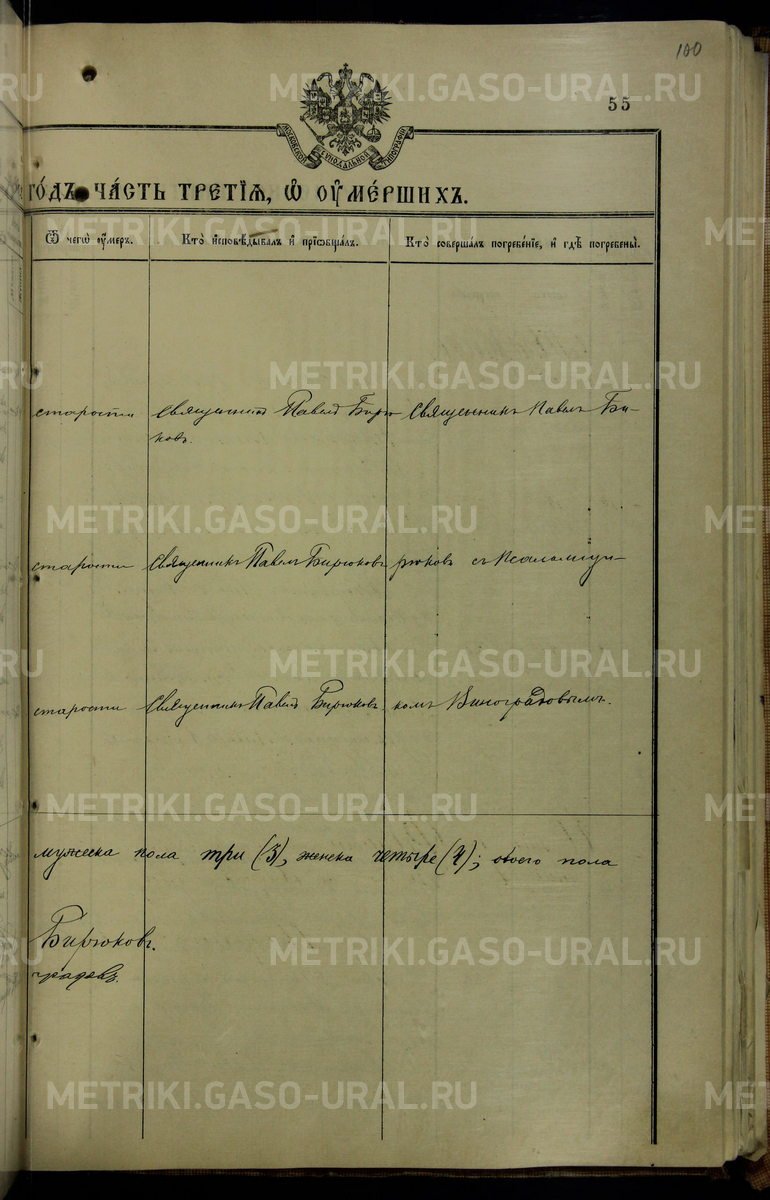 100
55
МОСКОВСКОЙ СѴНОДАЛЬНОЙ ТИПОГРАФІИ
ГО́ДЪ ЧА́СТЬ ТРЕТІѦ, Ѡ҆ ОУ҆МЕ́РШИХЪ.
Ѿ чегѡ̀ оу҆́меръ.
Кто̀ и҆сповѣ́дывалъ и҆ прїѡбща́лъ.
Кто̀ соверша́лъ погребе́нїе, и҆ гдѣ̀ погребены̀.
старости
Священникъ Павелъ Бирю-
ковъ.
Священникъ Павелъ Би-
старости
Священникъ Павелъ Бирюковъ
рюковъ съ Псаломщи-
старости
Священникъ Павелъ Бирюковъ.
комъ Виноградовымъ.
мужеска пола три (3), женска четыре (4); обоего пола
Бирюковъ.
градовъ.
METRIKI.GASO-URAL.RU